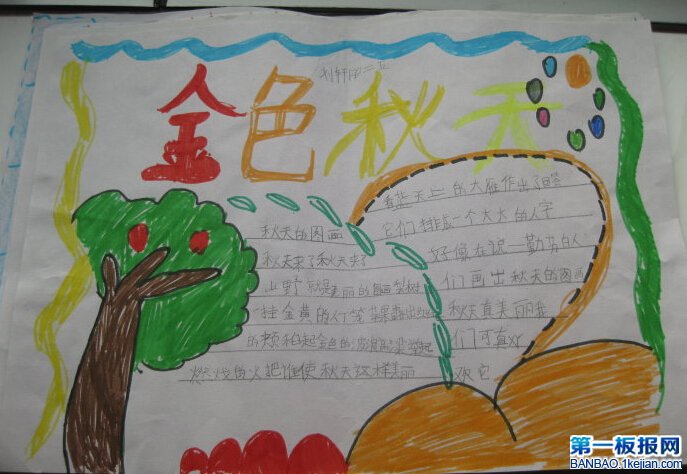 金色秋天
秋天的图画
秋天来了秋天来了
山野就是美丽的图画梨树
挂金黄的灯笼苹果露出红
的颊稻起金色的波
燃烧的火把谁使秋天这样美丽
看蓝天上的大雁作出了回答
它们排成一个大大的人字
好像在说 勤劳的人
们画出秋天的图画
秋天真美丽我
们可真
欢它
第一板报网
BANBAO.1kejian.com